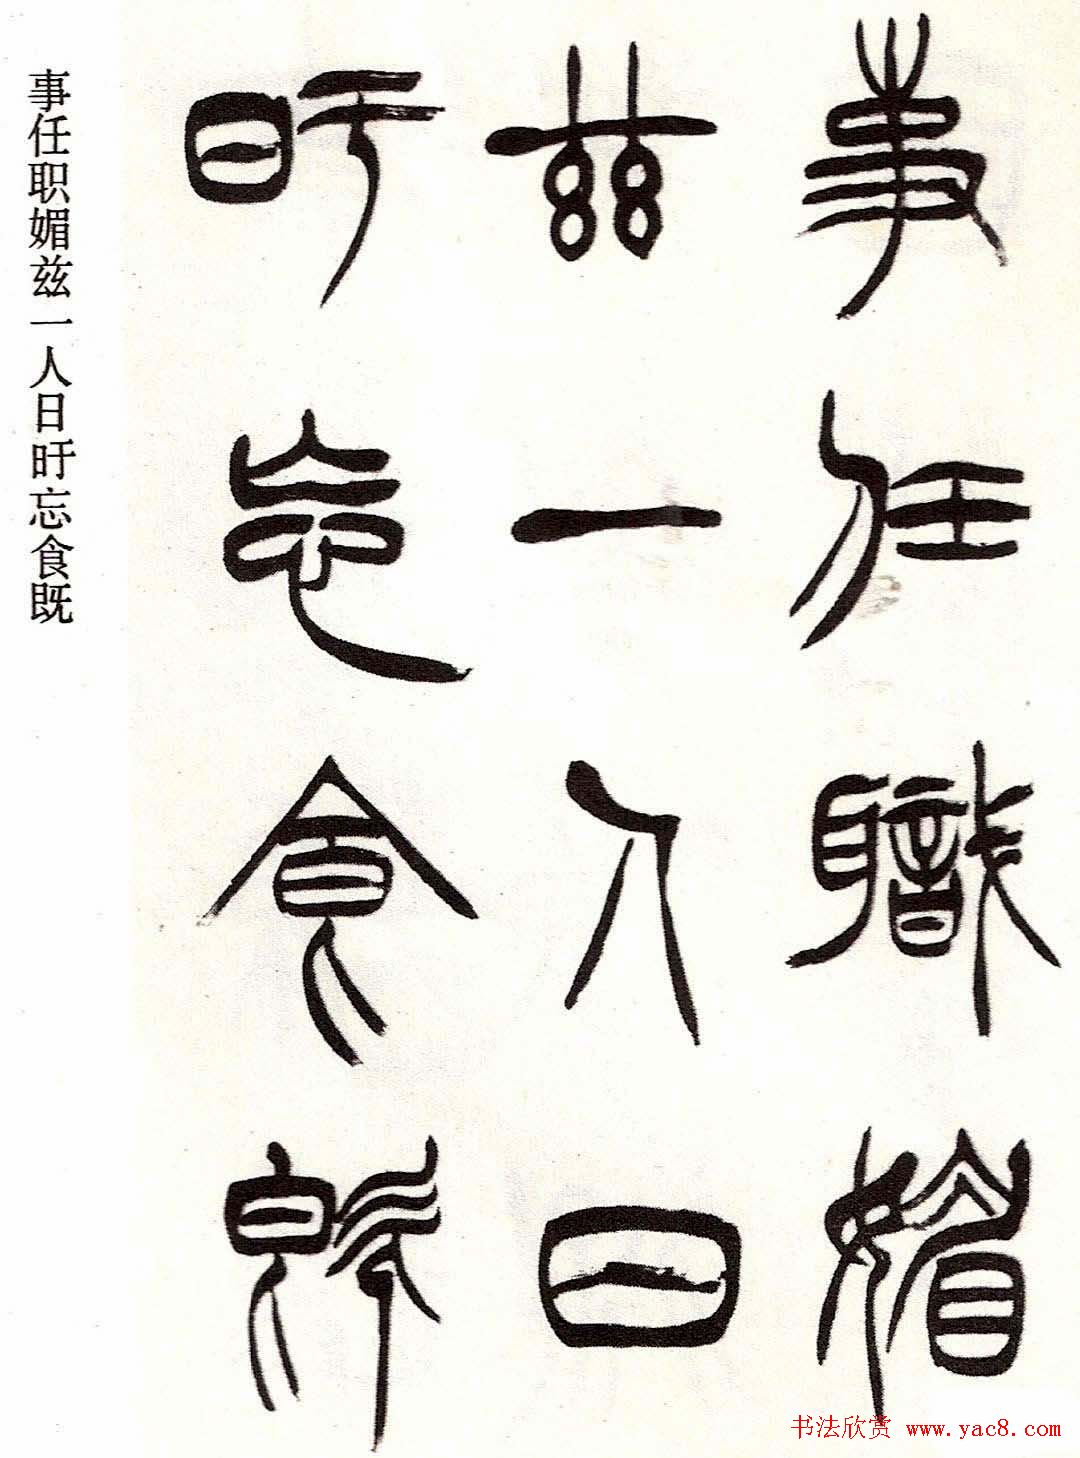 事任職媚
兹一人日
旰忘食既
事任职媚兹一人日旰忘食既
书法欣赏 www.yac8.com